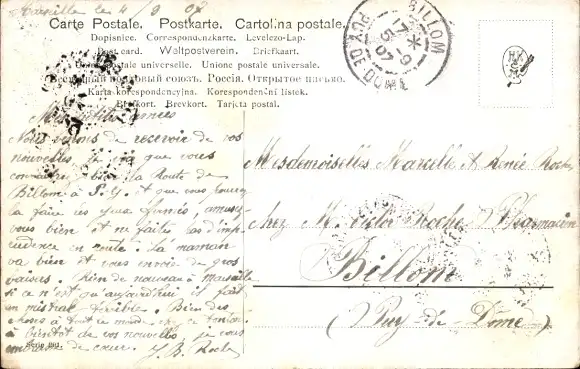 Marseille le 4/9 07
Carte Postale. Postkarte. Cartolina postale.
Dopisnice. Correspondenzkarte. Levelezo-Lap.
Post card. Weltpostverein. Briefkaart.
Union postale universelle. Unione postale universale.
Всемірный почтовый союзъ. Россія. Открытое письмо.
Karta korrespondencyjna. Korespondenční lístek.
Brefkort. Brevkort. Tarjeta postal.
BILLOM
17
5-9
07
PUY-DE-DOME
Mes petites
Nous venons de recevoir de vos
nouvelles, et que vous
bien la Route de
Billom à et que vous
la faire les yeux fermés, amusez
vous bien et ne faites pas d'imp
rudence en route. La maman
va bien et vous envoie de gros
baisers. Rien de nouveau à Marseille
si ce n'est qu'aujourd'hui il fait
un mistral terrible. Bien des
choses à tout le monde
à bientôt de vos nouvelles je vous
embrasse de cœur. J. B. Roche
Mesdemoiselles Marcelle et Renée Roche
Chez M. Victor Roche Pharmacien
Billom
(Puy-de-Dôme)
Serie